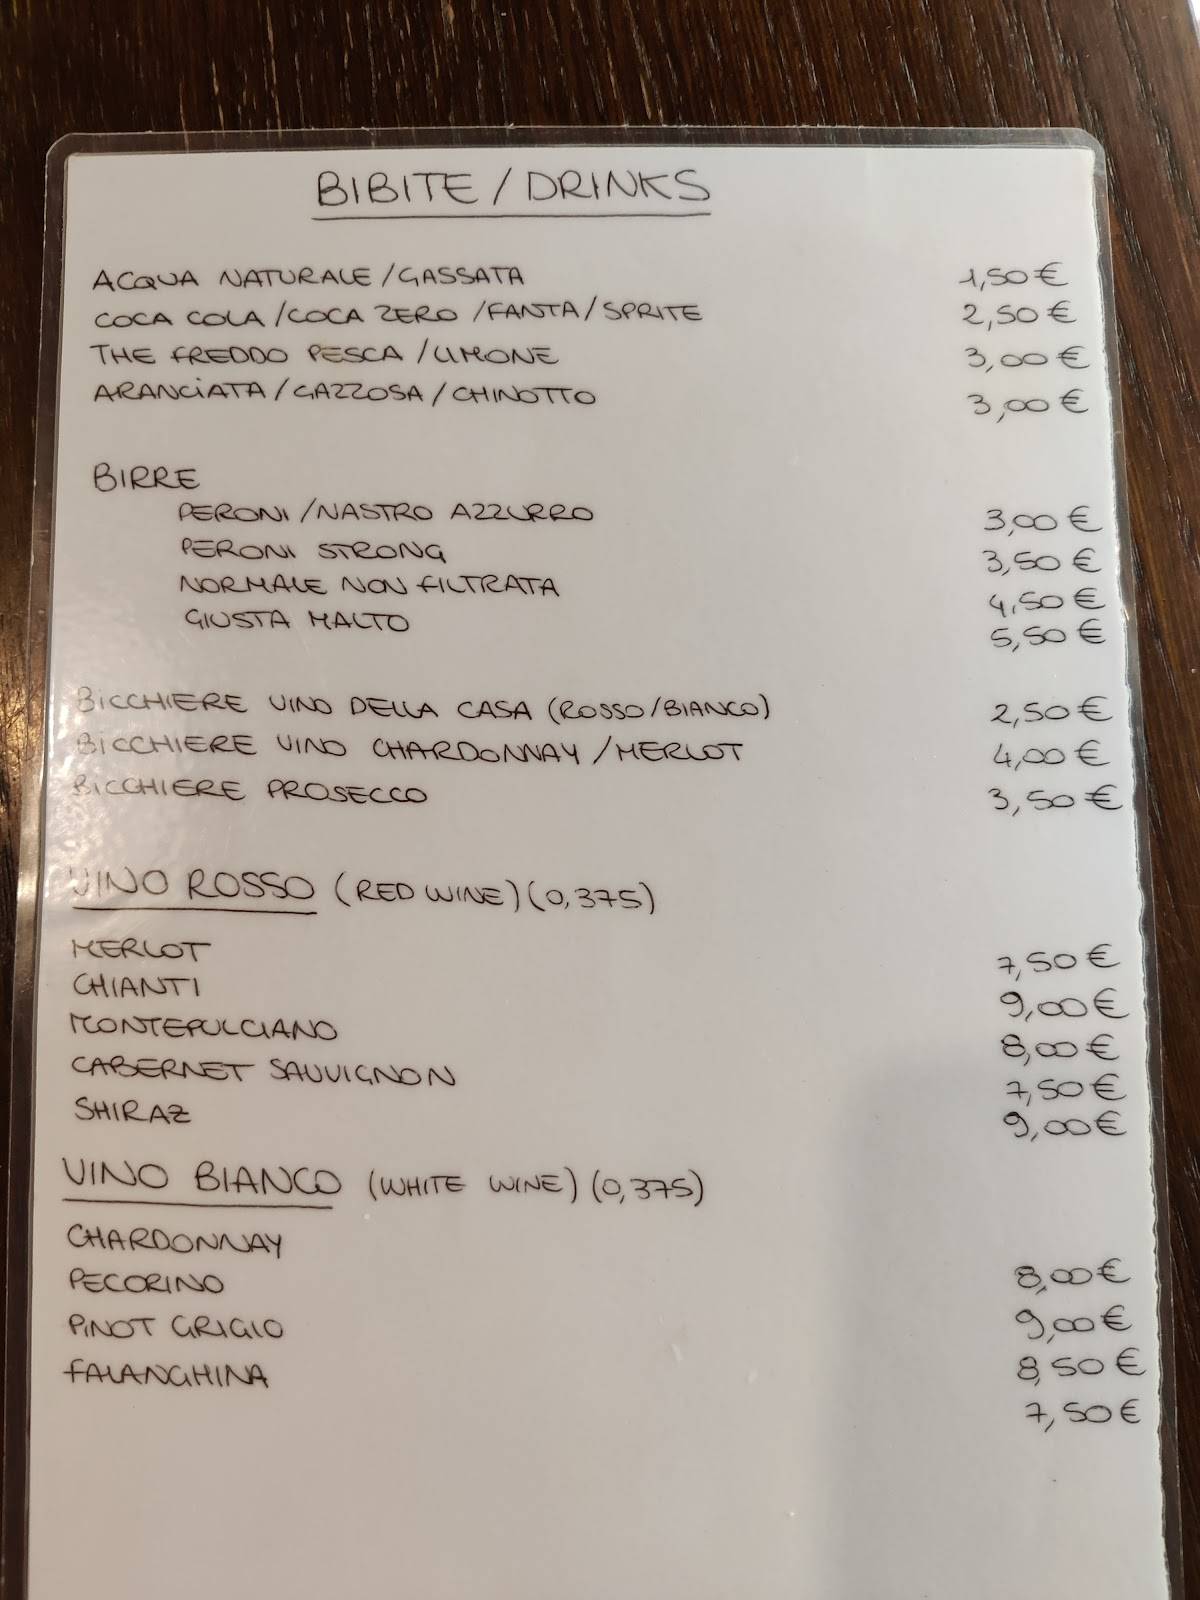 BIBITE / DRINKS
ACQUA NATURALE / GASSATA 1,50 €
COCA COLA / COCA ZERO / FANTA / SPRITE 2,50 €
THE FREDDO PESCA / LIMONE 3,00 €
ARANCIATA / GAZZOSA / CHINOTTO 3,00 €
BIRRE
PERONI / NASTRO AZZURRO 3,00 €
PERONI STRONG 3,50 €
NORMALE NON FILTRATA 4,50 €
GIUSTA MALTO 5,50 €
BICCHIERE VINO DELLA CASA (ROSSO/BIANCO) 2,50 €
BICCHIERE VINO CHARDONNAY / MERLOT 4,00 €
BICCHIERE PROSECCO 3,50 €
VINO ROSSO (RED WINE) (0,375)
MERLOT 7,50 €
CHIANTI 9,00 €
MONTEPULCIANO 8,00 €
CABERNET SAUVIGNON 7,50 €
SHIRAZ 9,00 €
VINO BIANCO (WHITE WINE) (0,375)
CHARDONNAY 8,00 €
PECORINO 9,00 €
PINOT GRIGIO 8,50 €
FALANGHINA 7,50 €